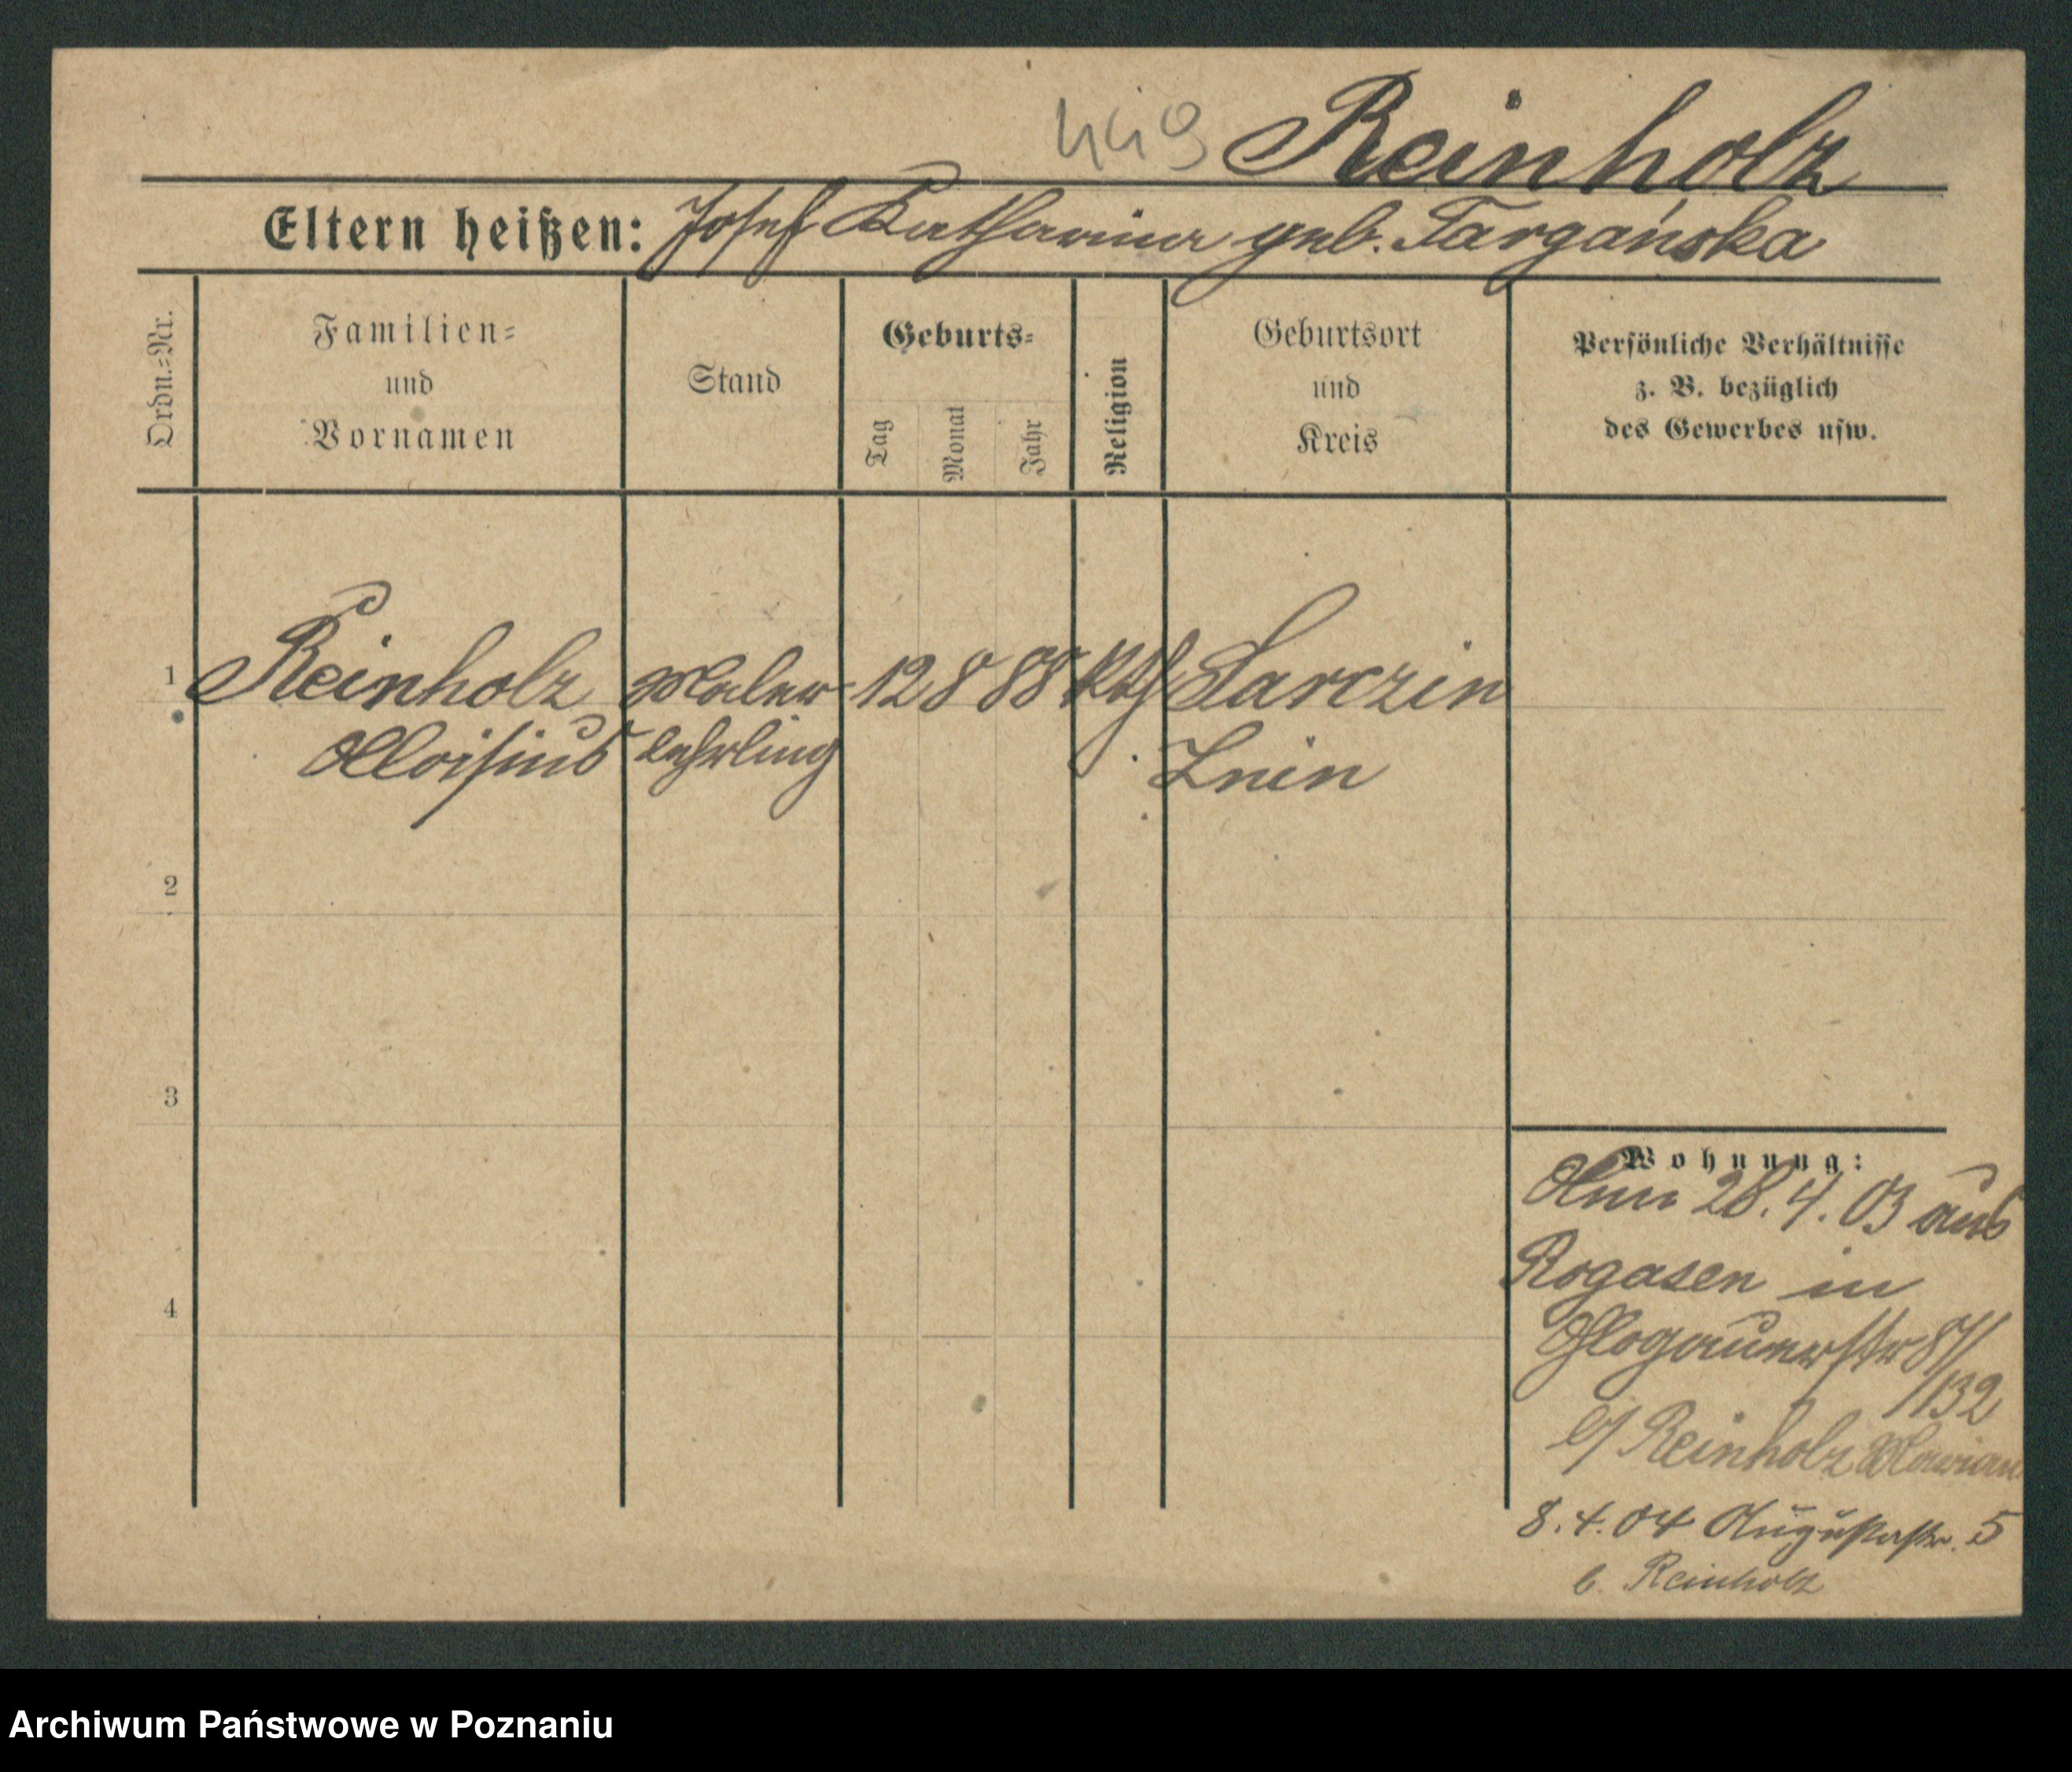 449 Reinholz
Eltern heißen: Josef Katharina geb. Targańska
Ordn.=Nr.
Familien=
und
Vornamen
Stand
Geburts=
Tag
Monat
Jahr
Religion
Geburtsort
und
Kreis
Persönliche Verhältnisse
z. B. bezüglich
des Gewerbes usw.
1 Reinholz Maler 12 8 88 Kth Sarczin
Aloisius lehrling Znin
2
3
4
Wohnung:
Anm 28.4.03 aus
Rogasen in
Glogauerstr 87/
/132
b/ Reinholz Marian
8.4.04 Augustastr. 5
b. Reinholz
Archiwum Państwowe w Poznaniu